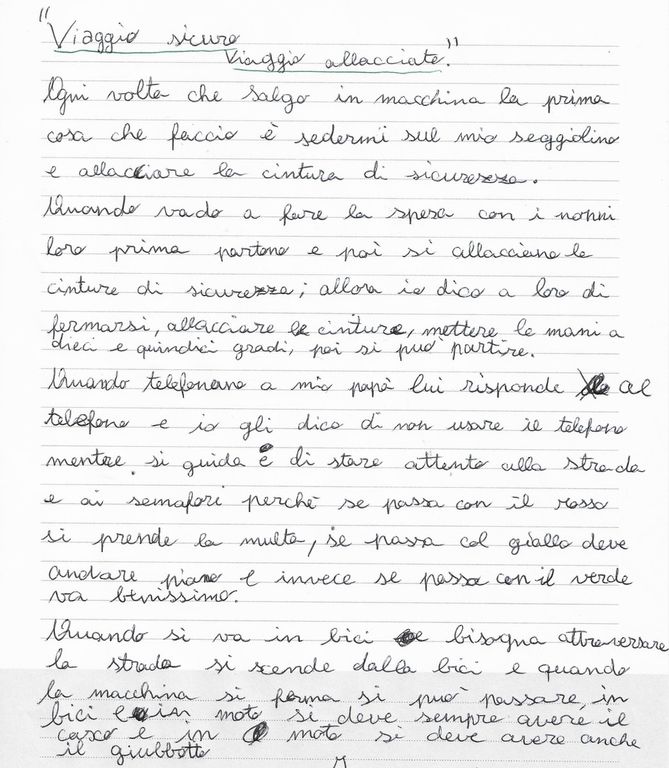 "Viaggio sicuro
Viaggio allacciato."
Ogni volta che salgo in macchina la prima
cosa che faccio è sedermi sul mio seggiolino
e allacciare la cintura di sicurezza.
Quando vado a fare la spesa con i nonni
loro prima partono e poi si allacciano le
cinture di sicurezza; allora io dico a loro di
fermarsi, allacciare le cinture, mettere le mani a
dieci e quindici gradi, poi si può partire.
Quando telefonano a mio papà lui risponde al
telefono e io gli dico di non usare il telefono
mentre si guida e di stare attento alla strada
e ai semafori perché se passa con il rosso
si prende la multa, se passa col giallo deve
andare piano e invece se passa con il verde
va benissimo.
Quando si va in bici e bisogna attraversare
la strada si scende dalla bici e quando
la macchina si ferma si può passare, in
bici e in moto si deve sempre avere il
casco e in moto si deve avere anche
il giubbotto